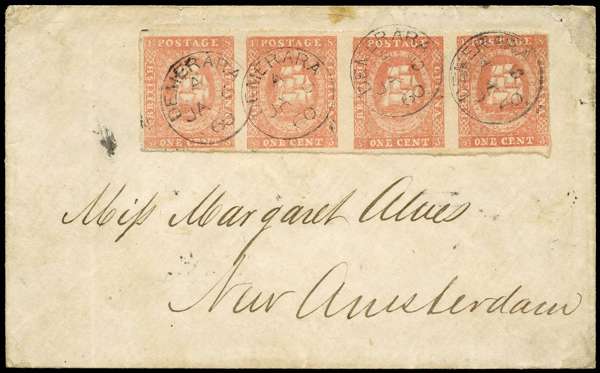 POSTAGE POSTAGE POSTAGE POSTAGE
BRITISH GUIANA
DEMERARA DEMERARA DEMERARA DEMERARA
A A
JA JA
60 60 60
ONE CENT ONE CENT ONE CENT ONE CENT
Miſs Margaret Alves
New Amsterdam